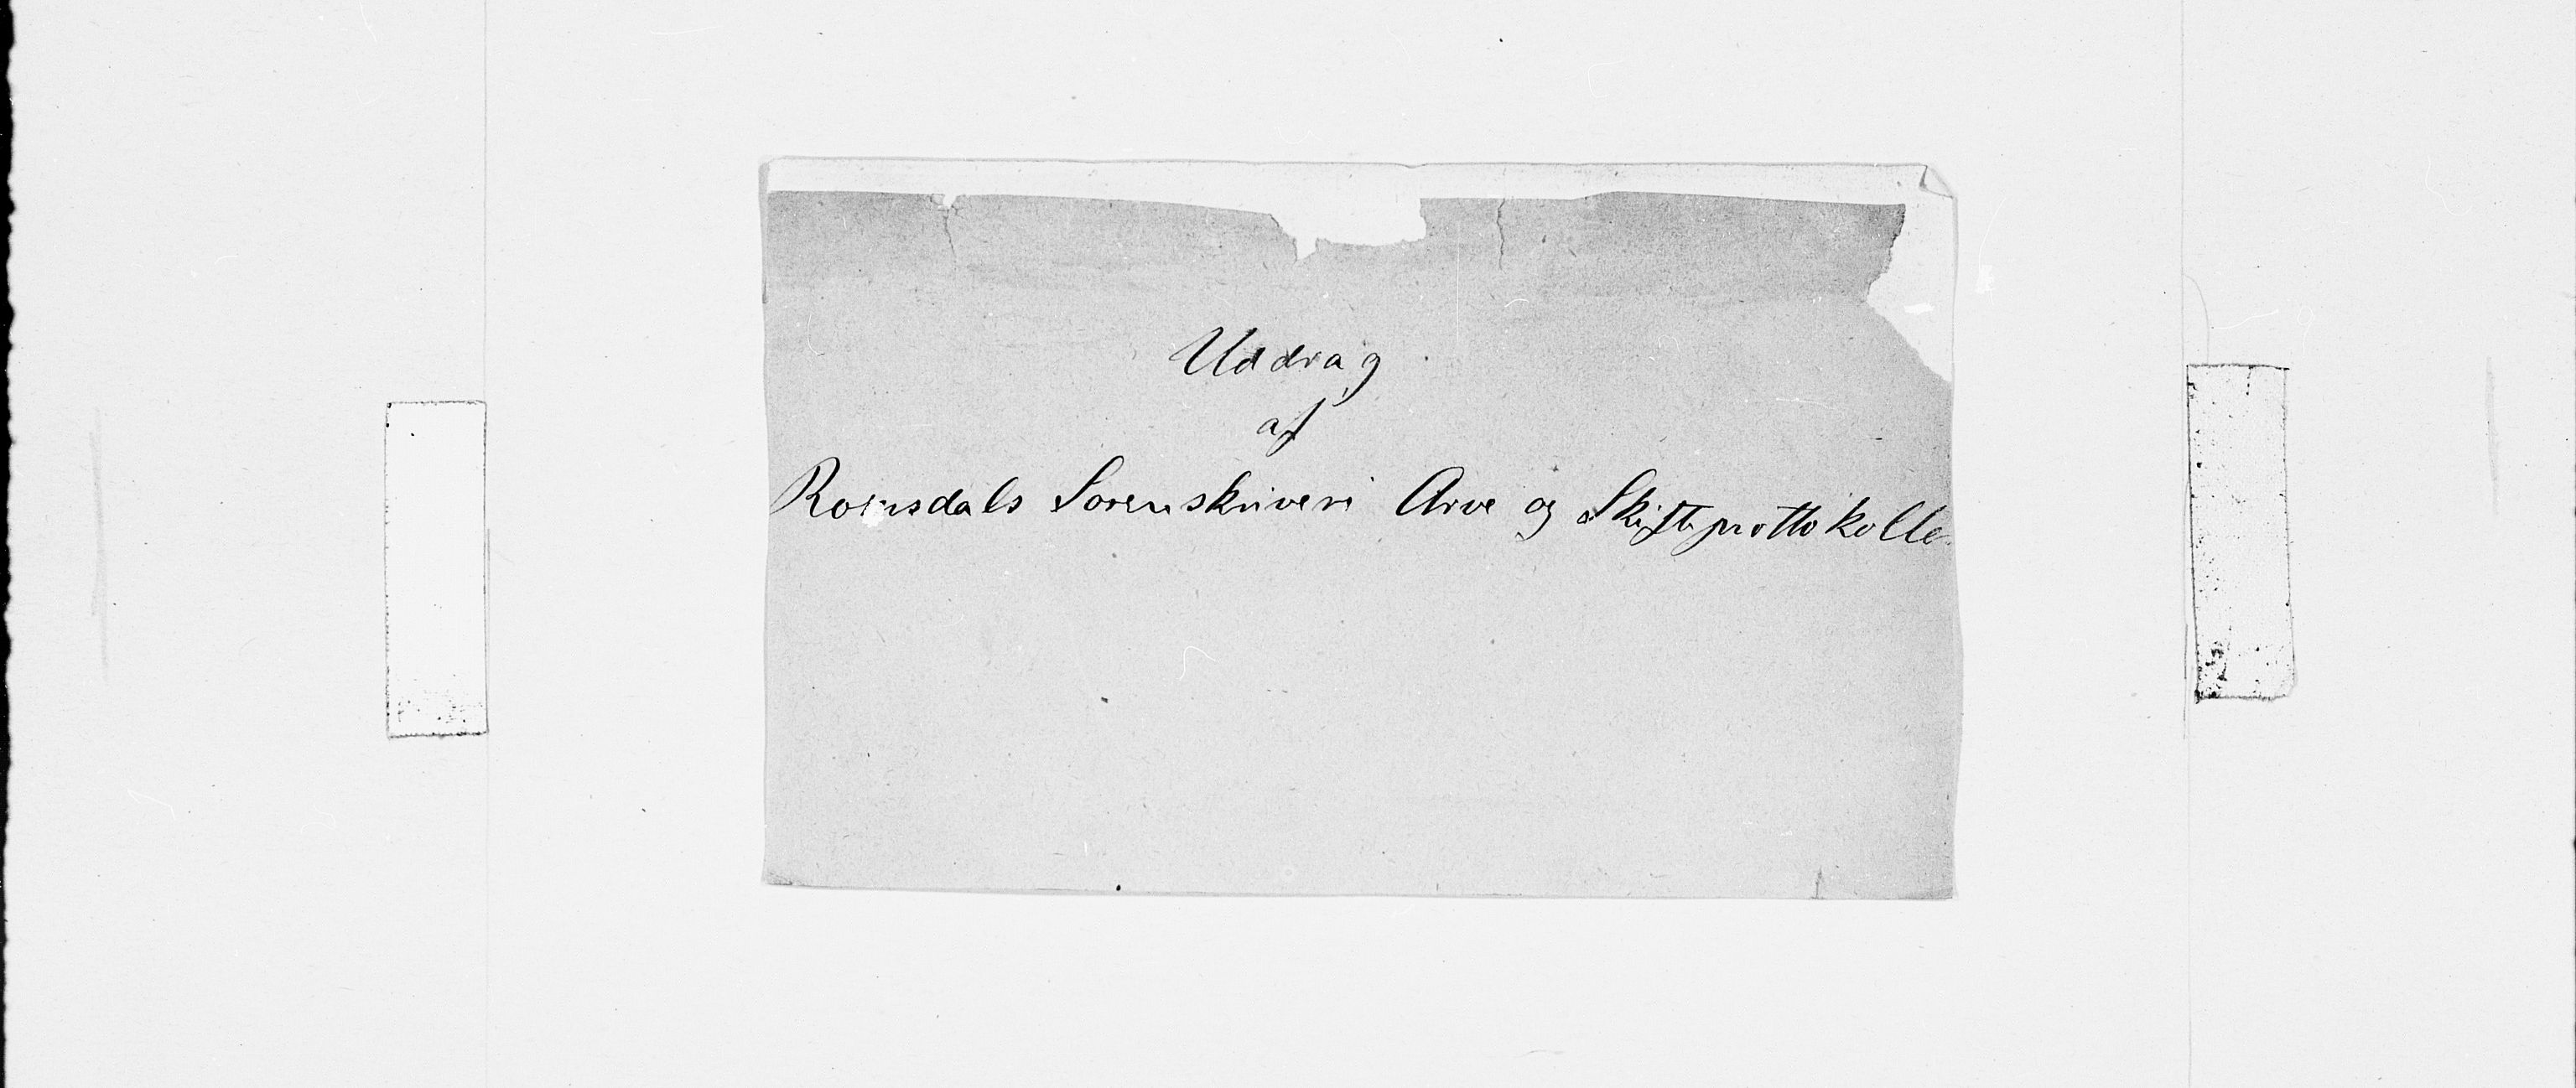 Uddrag
af
Romsdals Sorenskriveri Arve og Skifteprottokolle